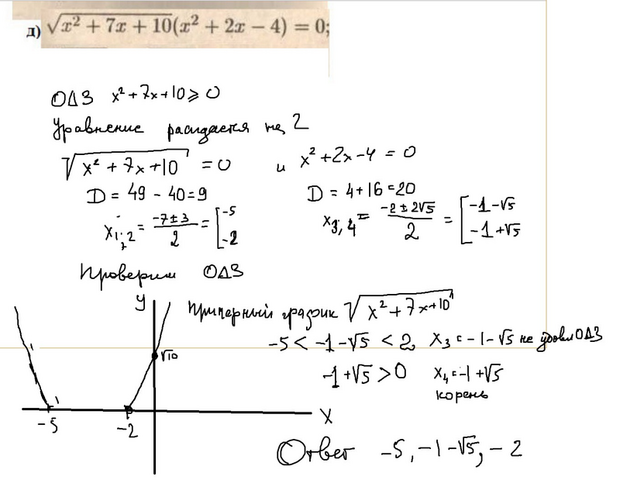 д) √(x² + 7x + 10)(x² + 2x − 4) = 0;
ОДЗ x² + 7x + 10 ⩾ 0
Уравнение распадается на 2
√(x² + 7x + 10) = 0 и x² + 2x − 4 = 0
D = 49 − 40 = 9 D = 4 + 16 = 20
x₁;₂ = (−7 ± 3)/2 = [−5 −2 x₃,₄ = (−2 ± 2√5)/2 = [−1−√5 −1+√5
Проверим ОДЗ
y Примерный график √(x² + 7x + 10)
−5 < −1−√5 < 2 x₃ = −1−√5 не удовл ОДЗ
√10
−1+√5 > 0 x₄ = −1+√5
корень
−5 −2 x
Ответ −5, −1−√5, −2